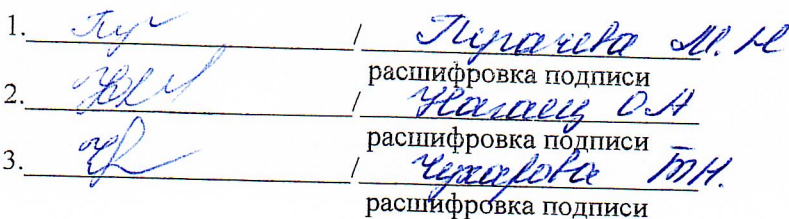 1. / Пурачева М. Н
расшифровка подписи
2. / Нагаец О А
расшифровка подписи
3. / Чухарова Т Н.
расшифровка подписи